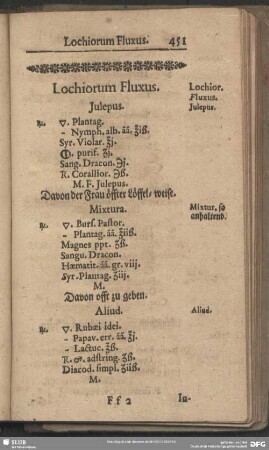 Lochiorum Fluxus. 451
Lochiorum Fluxus.
Lochior.
Fluxus.
Julepus.
Julepus.
℞. ▽. Plantag.
- Nymph. alb. āā. ℥iß.
Syr. Violar. ℥j.
purif. ʒj.
Sang. Dracon. ℈j.
R. Corallior. ℈ß.
M. F. Julepus.
Davon der Frau öffter Löffel-weise.
Mixtura.
Mixtur, so
anhaltend.
℞. ▽. Burs. Pastor.
- Plantag. āā. ℥iiß.
Magnes ppt. ʒß.
Sangu. Dracon.
Hæmatit. āā. gr. viij.
Syr. Plantag. ℥iij.
M.
Davon offt zu geben.
Aliud.
Aliud.
℞. ▽. Rubæi idei.
- Papav. err. āā. ℥j.
- Lactuc. ℥ß.
R. adstring. ℥ß.
Diacod. simpl. ℥iiß.
M.
F f 2
In-
SLUB